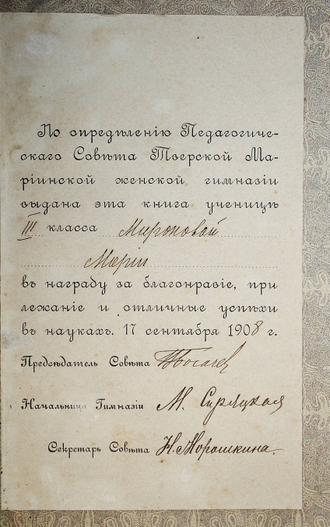 По опредѣленію Педагогиче-
скаго Совѣта Тверской Ма-
ріинской женской гимназіи
выдана эта книга ученицѣ
III класса Мироновой
Маріи
въ награду за благонравіе, при
лежаніе и отличные успѣхи
въ наукахъ. 17 сентября 1908 г.
Предсѣдатель Совѣта
Начальница Гимназіи М.
Секретарь Совѣта Н. Морошкина.